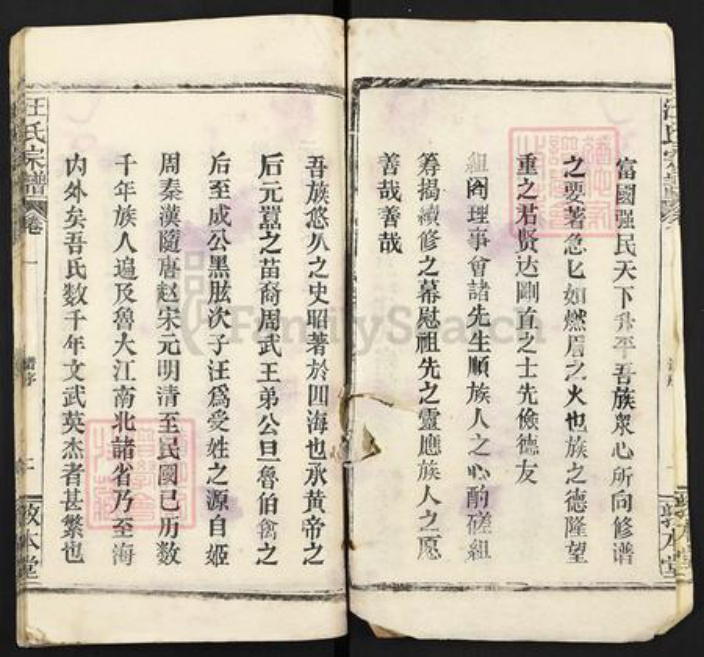 富國强民天下升平吾族衆心所向修谱
之要著急匕如燃眉之火也族之德隆望
重之君贤达剛首之士先儉德友
組阁理事會諸先生順族人之心酌磋組
筹揭續修之幕慰祖先之靈應族人之愿
善哉善哉
吾族悠久之史昭著於四海也承黄帝之
后元嚣之苗裔周武王弟公旦魯伯禽之
后至成公黑肱次子汪爲受姓之源自姬
周秦漢隨唐赵宋元明清至民國已历數
千年族人遍及魯大江南北諸省乃至海
内外矣吾氏数千年文武英杰者甚繁也
汪氏宗譜 卷一 譜序 二 敦本堂
FamilySearch